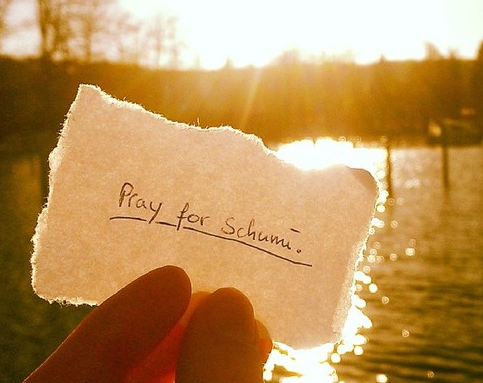 Pray for Schumi.